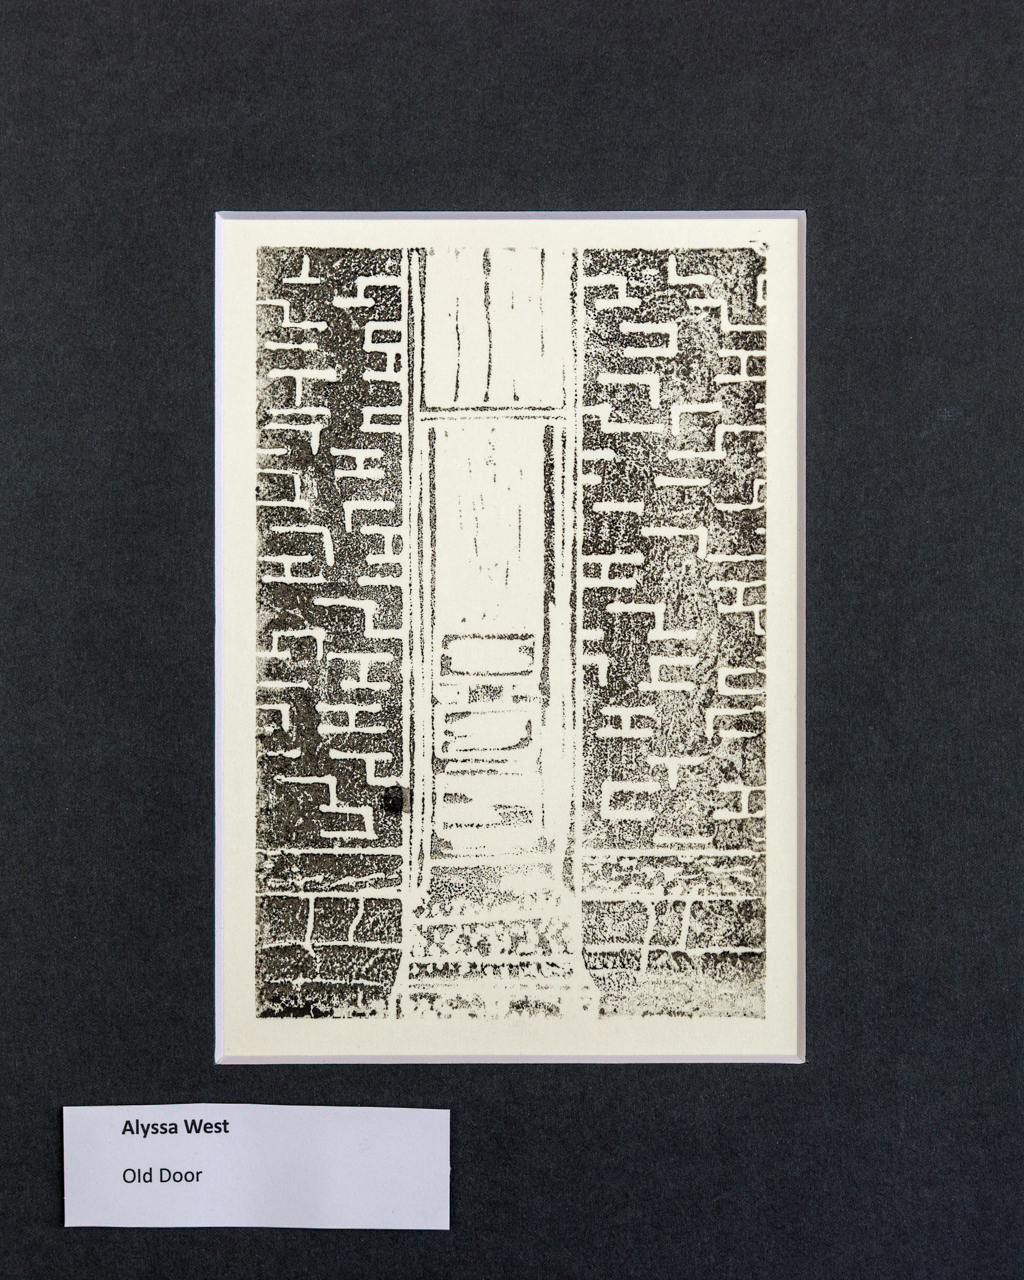 Alyssa West
Old Door